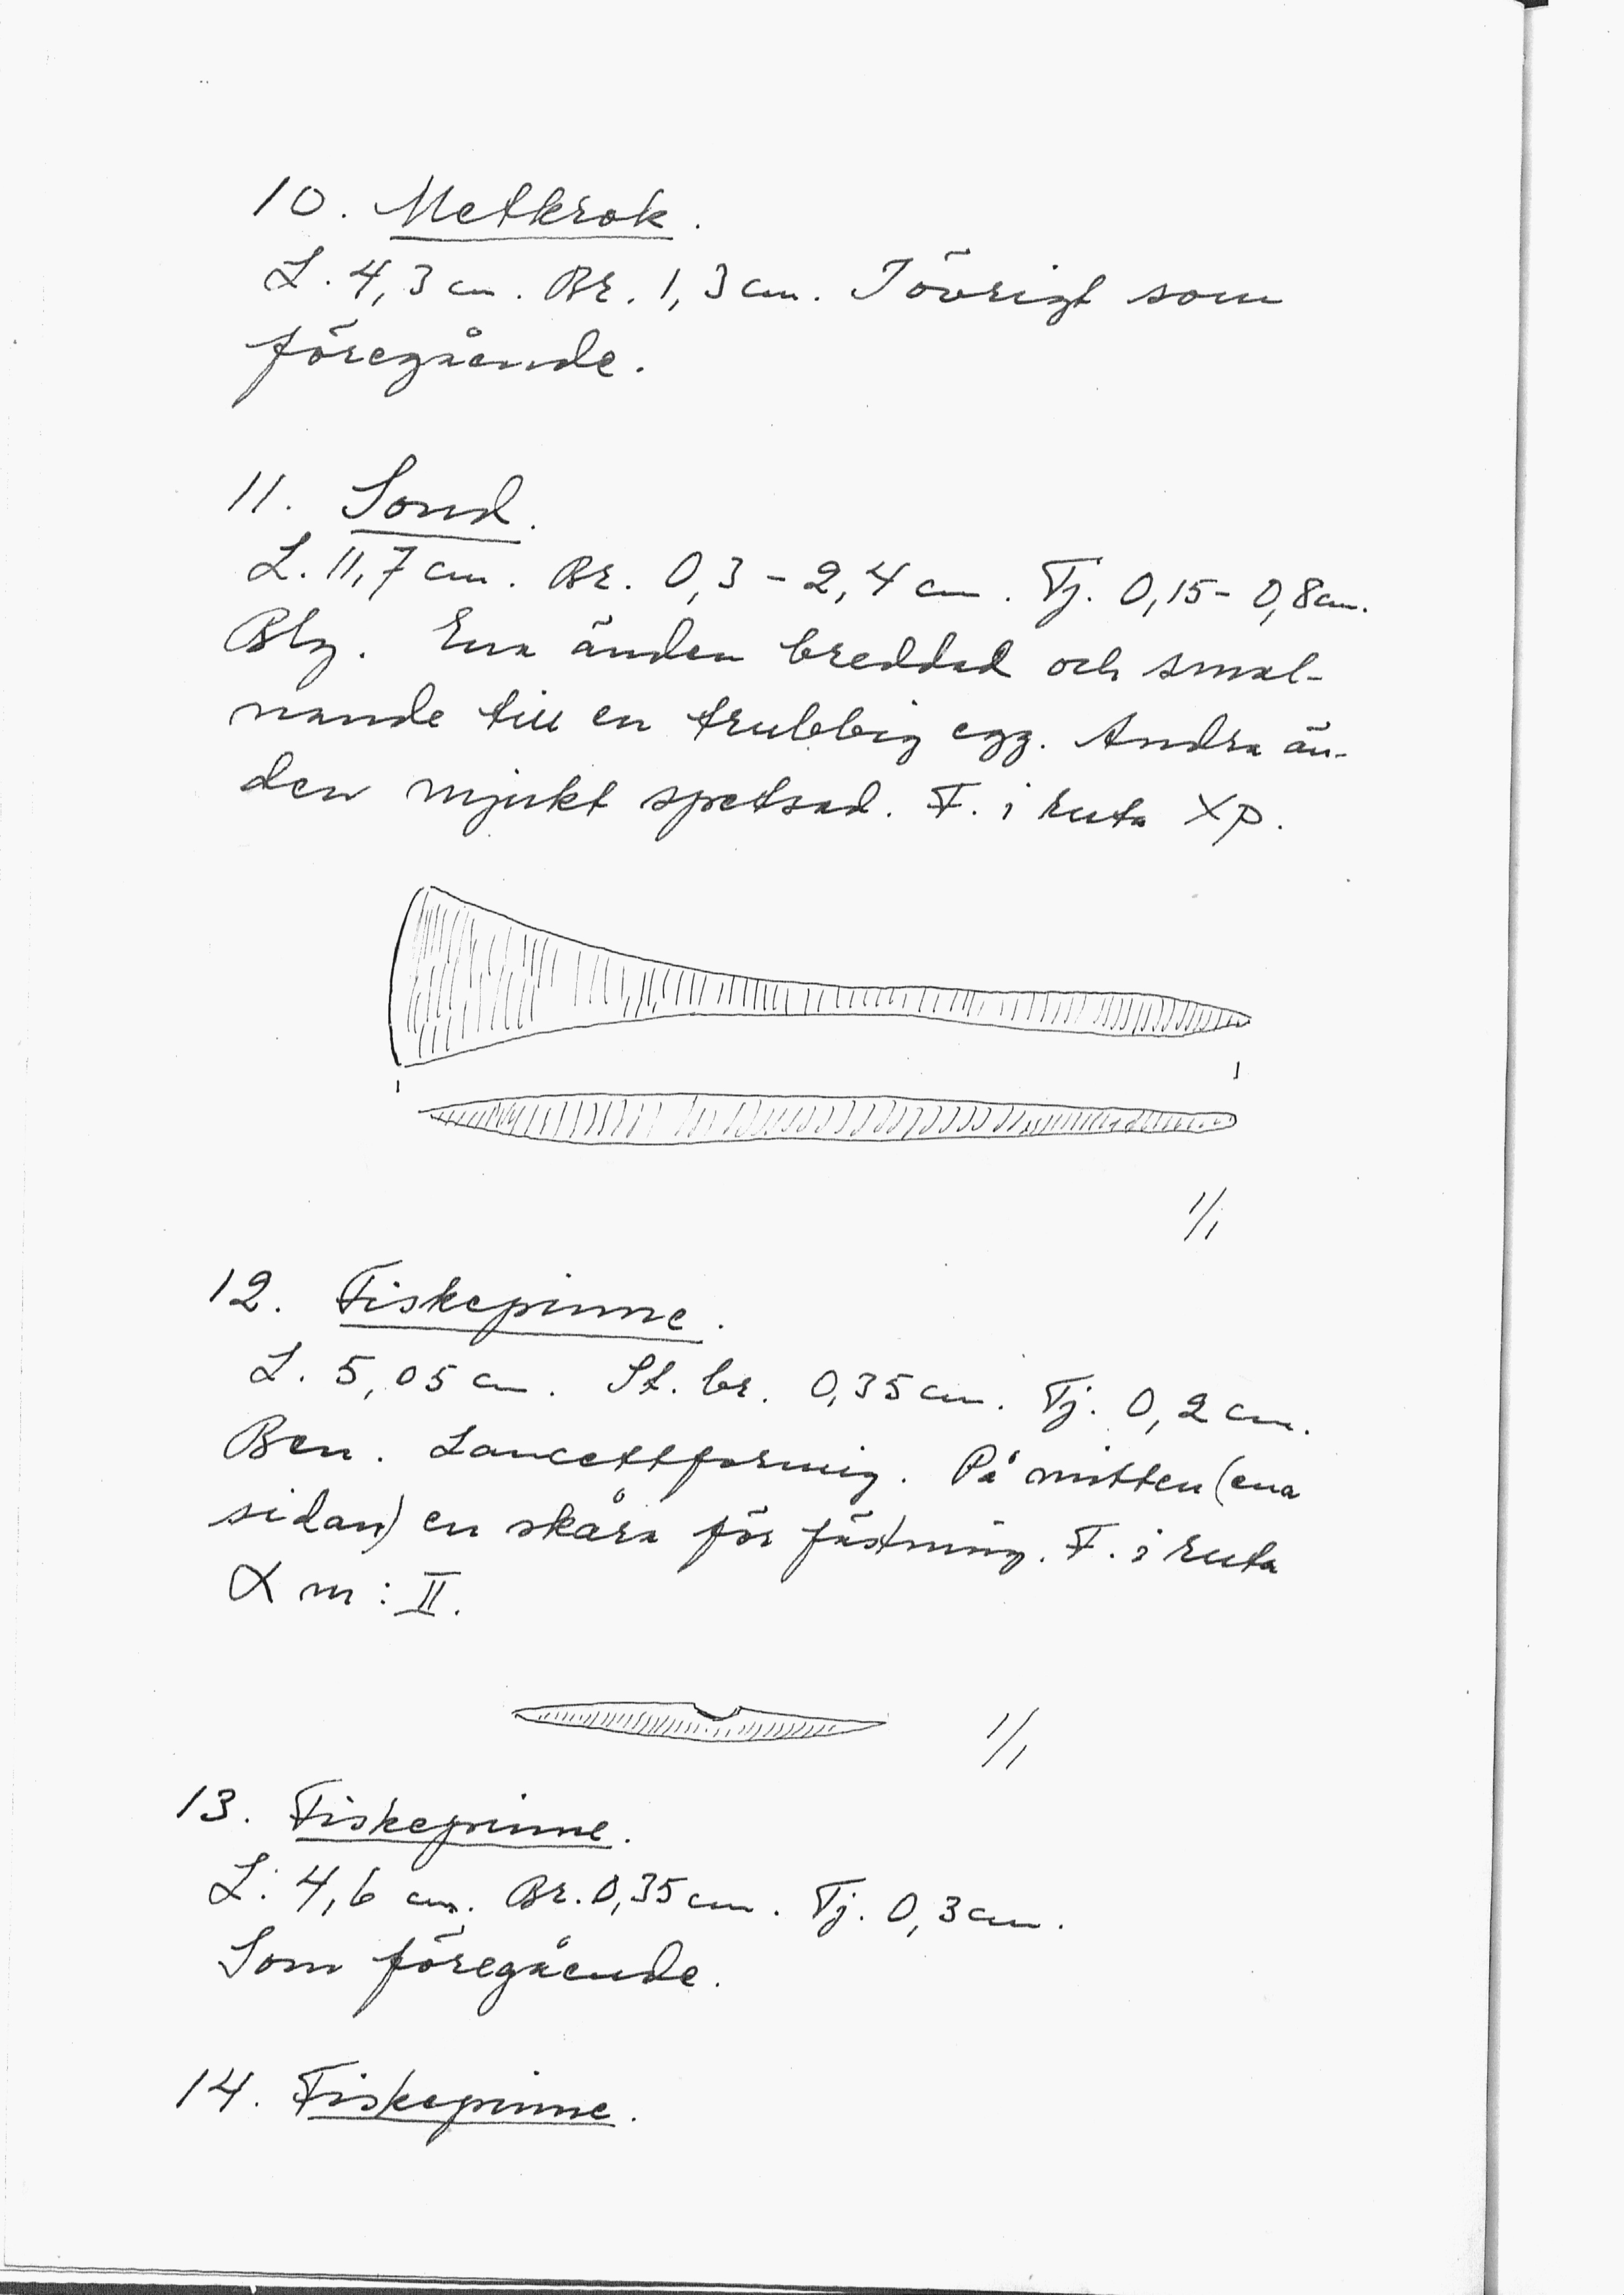 10. Metkrok.
L. 4,3 cm. Br. 1,3 cm. I övrigt som
föregående.
11. Sond.
L. 11,7 cm. Br. 0,3 - 2,4 cm. Tj. 0,15 - 0,8 cm.
Ena änden breddad och smal-
nande till en trubbig egg. Andra än-
den mjukt spetsad. F. i ruta XP.
1/1
12. Fiskepinne.
L. 5,05 cm. St. br. 0,35 cm. Tj. 0,2 cm.
Ben. Lancettformig. På mitten (ena
sidan) en skåra för fästning. F. i ruta
m : II.
1/1
13. Fiskepinne.
L. 4,6 cm. Br. 0,35 cm. Tj. 0,3 cm.
Som föregående.
14. Fiskepinne.